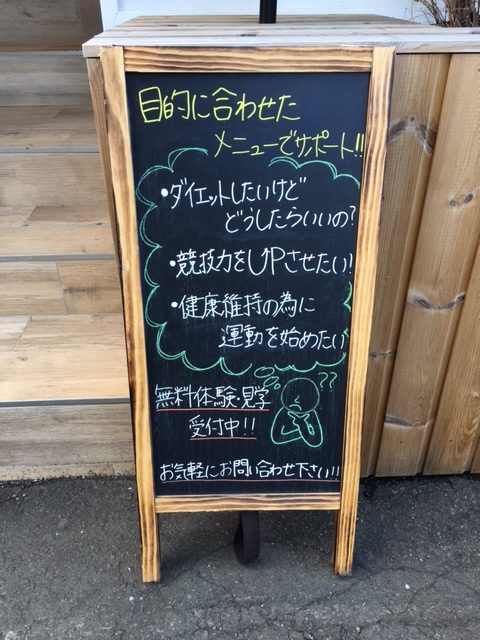 目的に合わせた
メニューでサポート!!
・ダイエットしたいけど
どうしたらいいの?
・競技力をUPさせたい!
・健康維持の為に
運動を始めたい
??
無料体験・見学
受付中!!
お気軽にお問い合わせ下さい!!